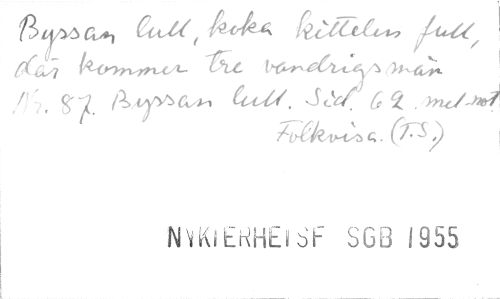 Byssan lull, koka kitteln full,
där kommer tre vandrigsmän
Nr. 87. Byssan lull. Sid. 62. mel.-not.
Folkvisa. (T.S.)
NYKTERHETSF SGB 1955